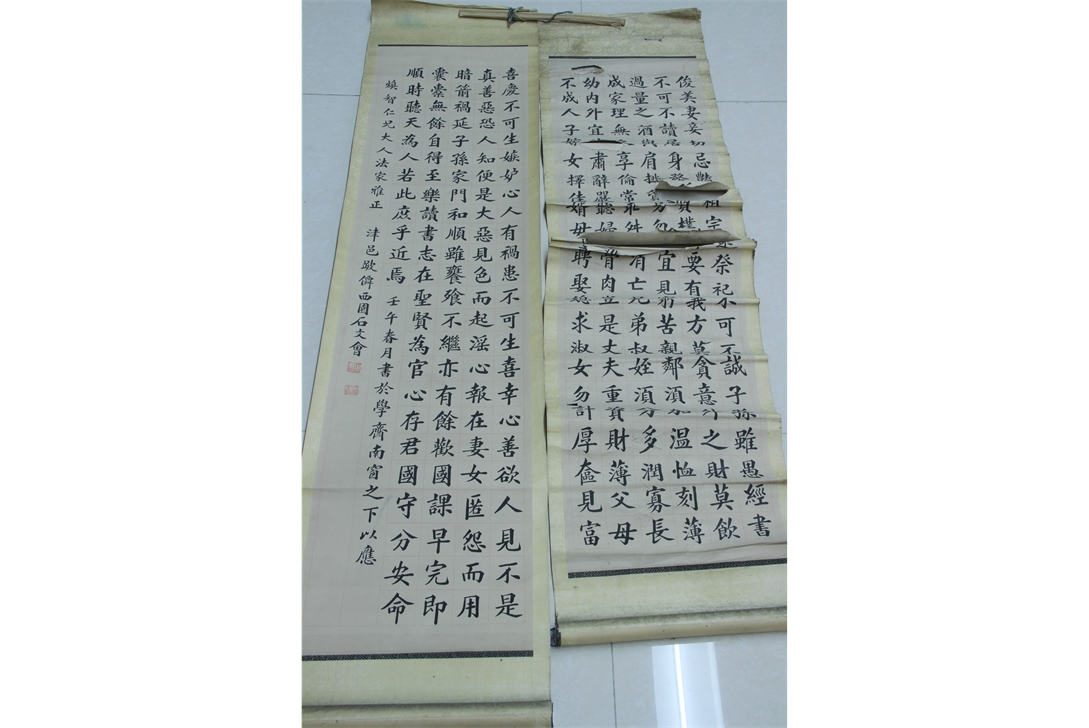 俊美妻妾切忌艷祖宗祭祀不可不誠子孫雖愚經書
不可不讀居身務質樸要有義方莫貪意外之財莫飲
過量之酒與肩挑易勿宜見窮苦親鄰須加溫恤刻薄
成家理無久享倫常乖舛有亡兄弟叔姪須分多潤寡長
幼內外宜肅辭嚴聽婦骨肉豈是丈夫重貲財薄父母
不成人子嫁女擇佳婿毋聘娶媳求淑女勿計厚奩見富
喜慶不可生嫉妒心人有禍患不可生喜幸心善欲人見不是
真善惡恐人知便是大惡見色而起淫心報在妻女匿怨而用
暗箭禍延子孫家門和順雖饔飧不繼亦有餘歡國課早完即
囊橐無餘自得至樂讀書志在聖賢為官心存君國守分安命
順時聽天為人若此庶乎近焉 壬午春月書於學齋南窗之下以應
煥智仁兄大人法家雅正 津邑西園石文會